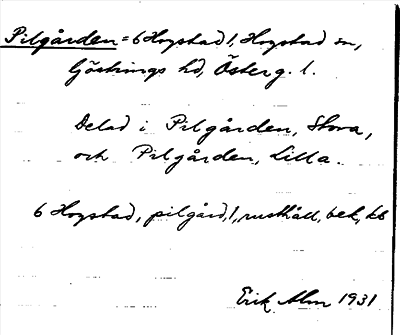 Pilgården = 6 Hogstad 1, Hogstad sn,
Göstrings hd, Österg. l.
Delad i Pilgården, Stora,
och Pilgården, Lilla.
6 Hogstad, pilgård, 1, rusthåll, bek, kb
Erik Alm 1931